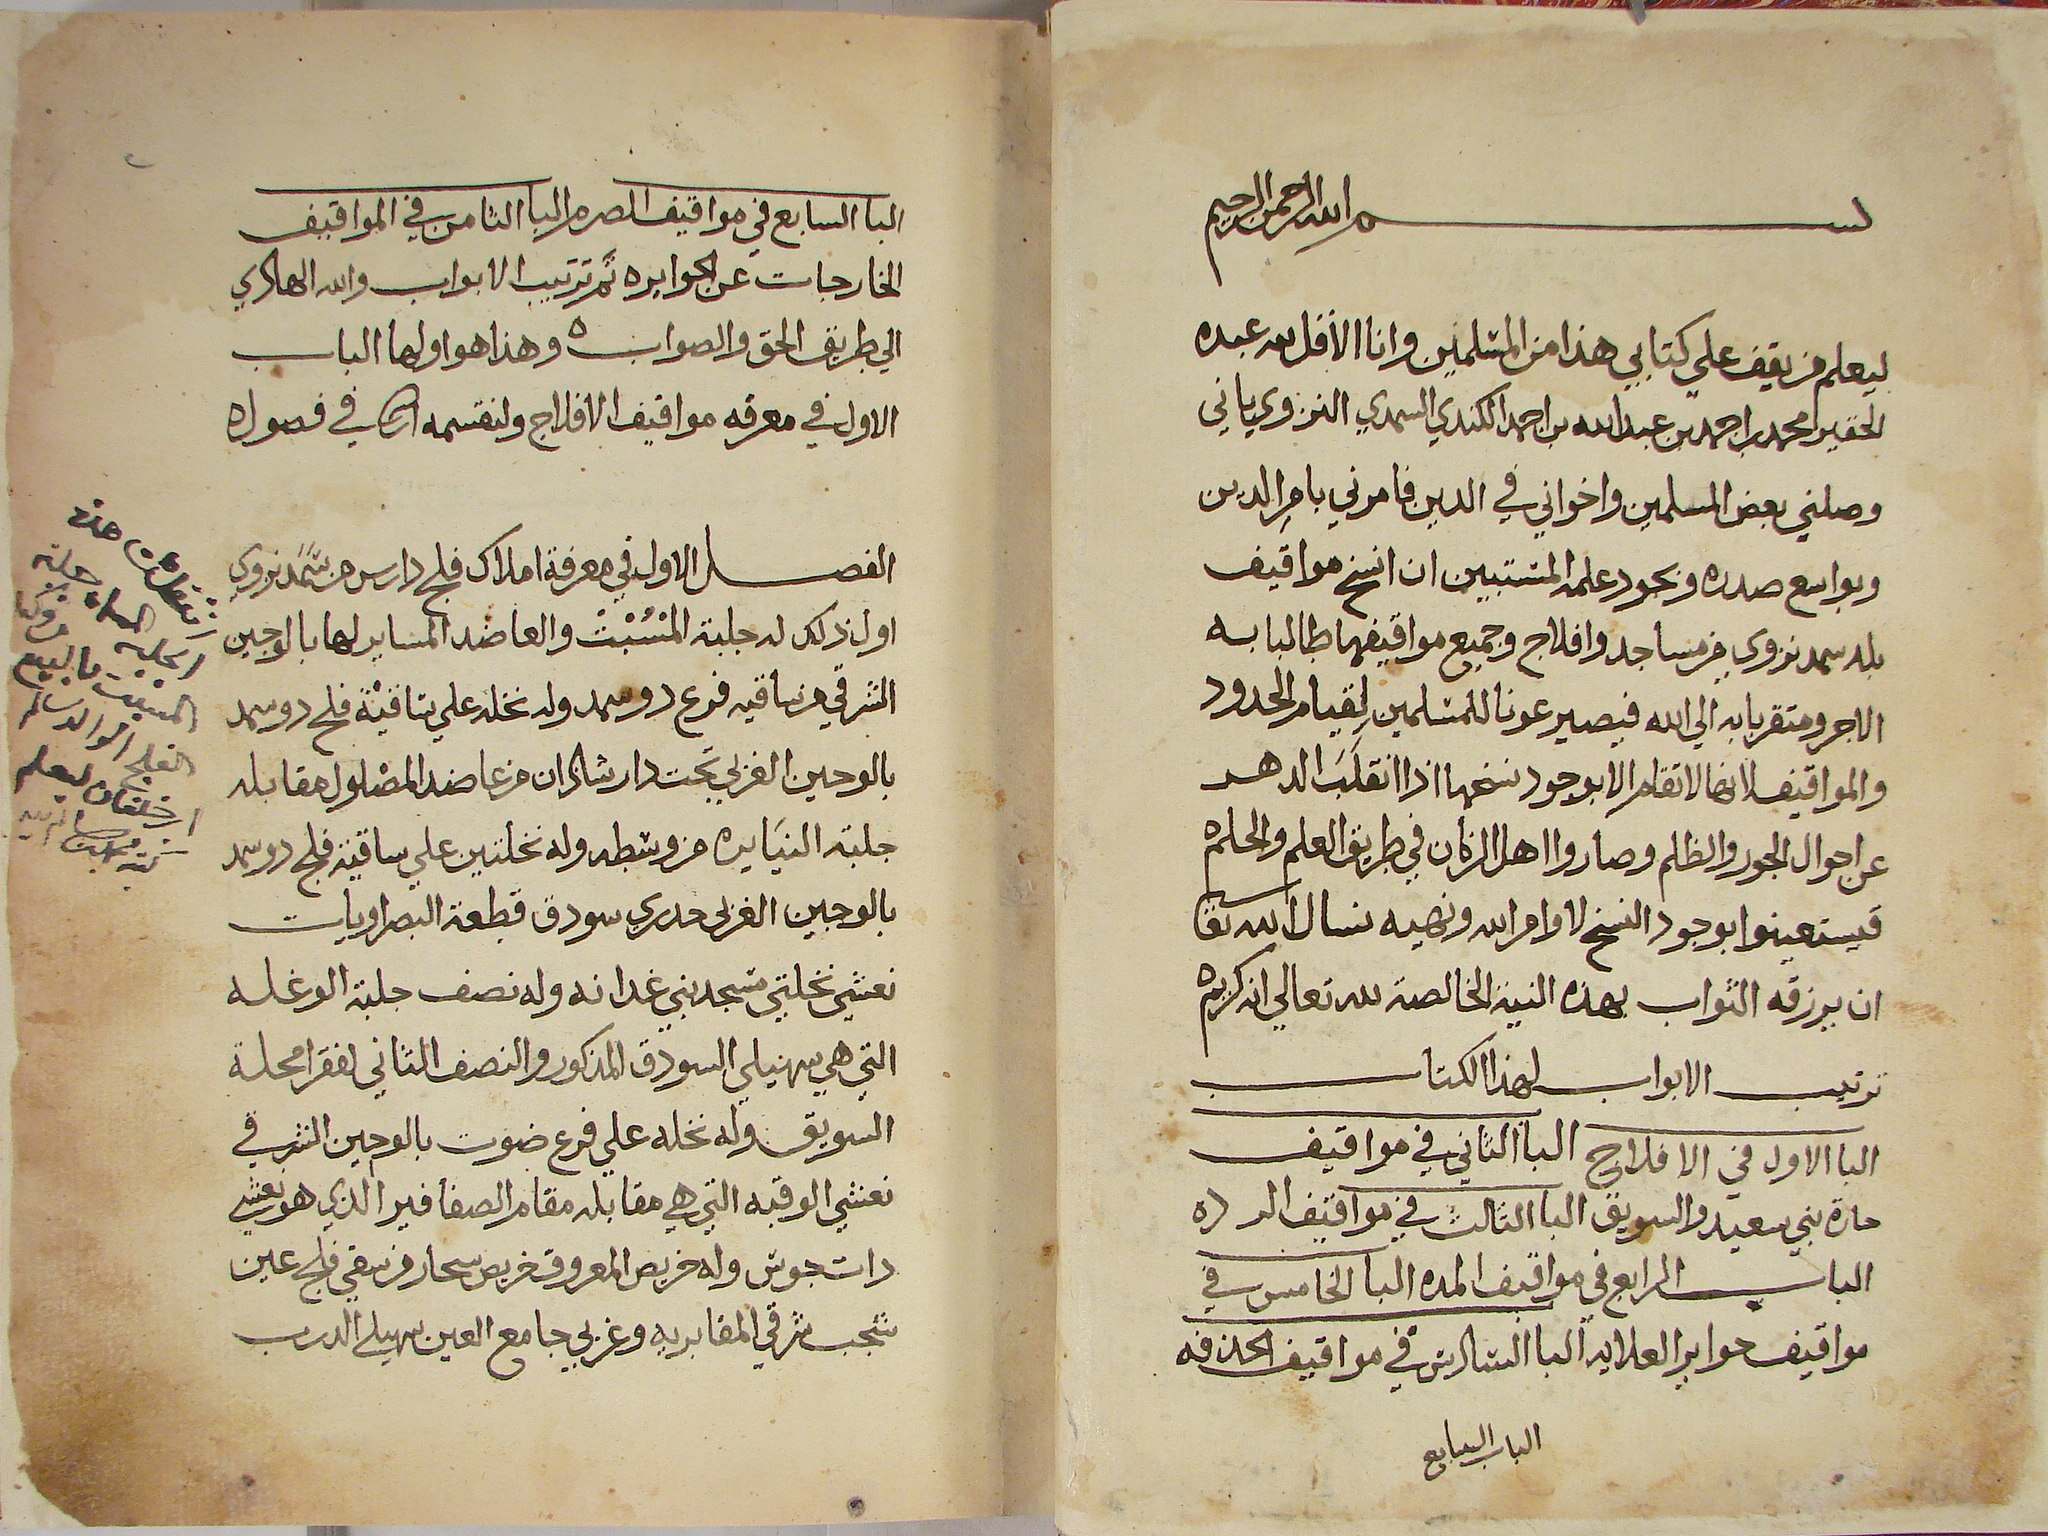 بسم الله الرحمن الرحيم
ليعلم من يقف علي كتابي هذا من المسلمين وانا الاقل لله عبده
الحقير محمد بن احمد بن عبدالله بن احمد الكندي السمدي النزوي باني
وصلني بعض المسلمين واخواني في الدين فامرني بامر الدين
وبواسع صدره وبجود علمه المستبين ان انسخ مواقيف
بلد سمد نزوي من مساجد وافلاج وجميع مواقيفها طالبا به
الاجر ومتقربا به الي الله فيصير عونا للمسلمين لقيام الحدود
والمواقيف لانها لا تقام الا بوجود نسخها اذا انقلب الدهر
عن احوال الجور والظلم وصاروا اهل الزمان في طريق العلم والحلم ه
فيستعينوا بوجود النسخ لاوامر الله ونهيه نسال الله تعا
ان يرزقه الثواب بهذه النية الخالصة لله تعالي انه كريم ه
ترتيب الابواب لهذا الكتاب
البا الاول في الافلاج البا الثاني في مواقيف
حارة بني سعيد والسويق البا الثالث في مواقيف
الباب الرابع في مواقيف المده البا الخامس في
مواقيف حواير العلايه البا السادس في مواقيف الحذفه
الباب السابع
البا السابع في مواقيف الصرم البا الثامن في المواقيف
الخارجات عن الحوايره تم ترتيب الابواب والله الهادي
الي طريق الحق والصواب ه وهذا هو اولها الباب
الاول في معرفه مواقيف الافلاج ولنقسمه في فصول ه
الفصل الاول في معرفة املاك فلج دارس من سمد نزوي
اول ذلك له جلبة المنسبت والعاضد المساير لها بالوجين
الشرقي من ساقيه فرع دوسمد وله نخله علي ساقية فلج دوسمد
بالوجين الغربي تحت دار شاذان من عاضد المضلول مقابله
جلبة النيايره من وسطه وله نخلتين علي ساقية فلج دوسمد
بالوجين الغربي حدري سودق قطعة البصراويات
نعشي نخلتي مسجد بني غدانه وله نصف جلبة الوغله
التي هي سهيلي السودق المذكور والنصف الثاني لفقرا محلة
السويق وله نخله علي فرع ضوت بالوجين الشرقي
نعشي الوقبه التي هي مقابله مقام الصفافير الذي هو نعشي
دات جوش وله خريص المعروف خريص سحار من سقي فلج عين
شجب شرقي المقابريه وغربي جامع العين سهيلي الدرب
هذه
الجلبة جلبة
المنسبت
الفلج الوالد
خلفان ليعلم